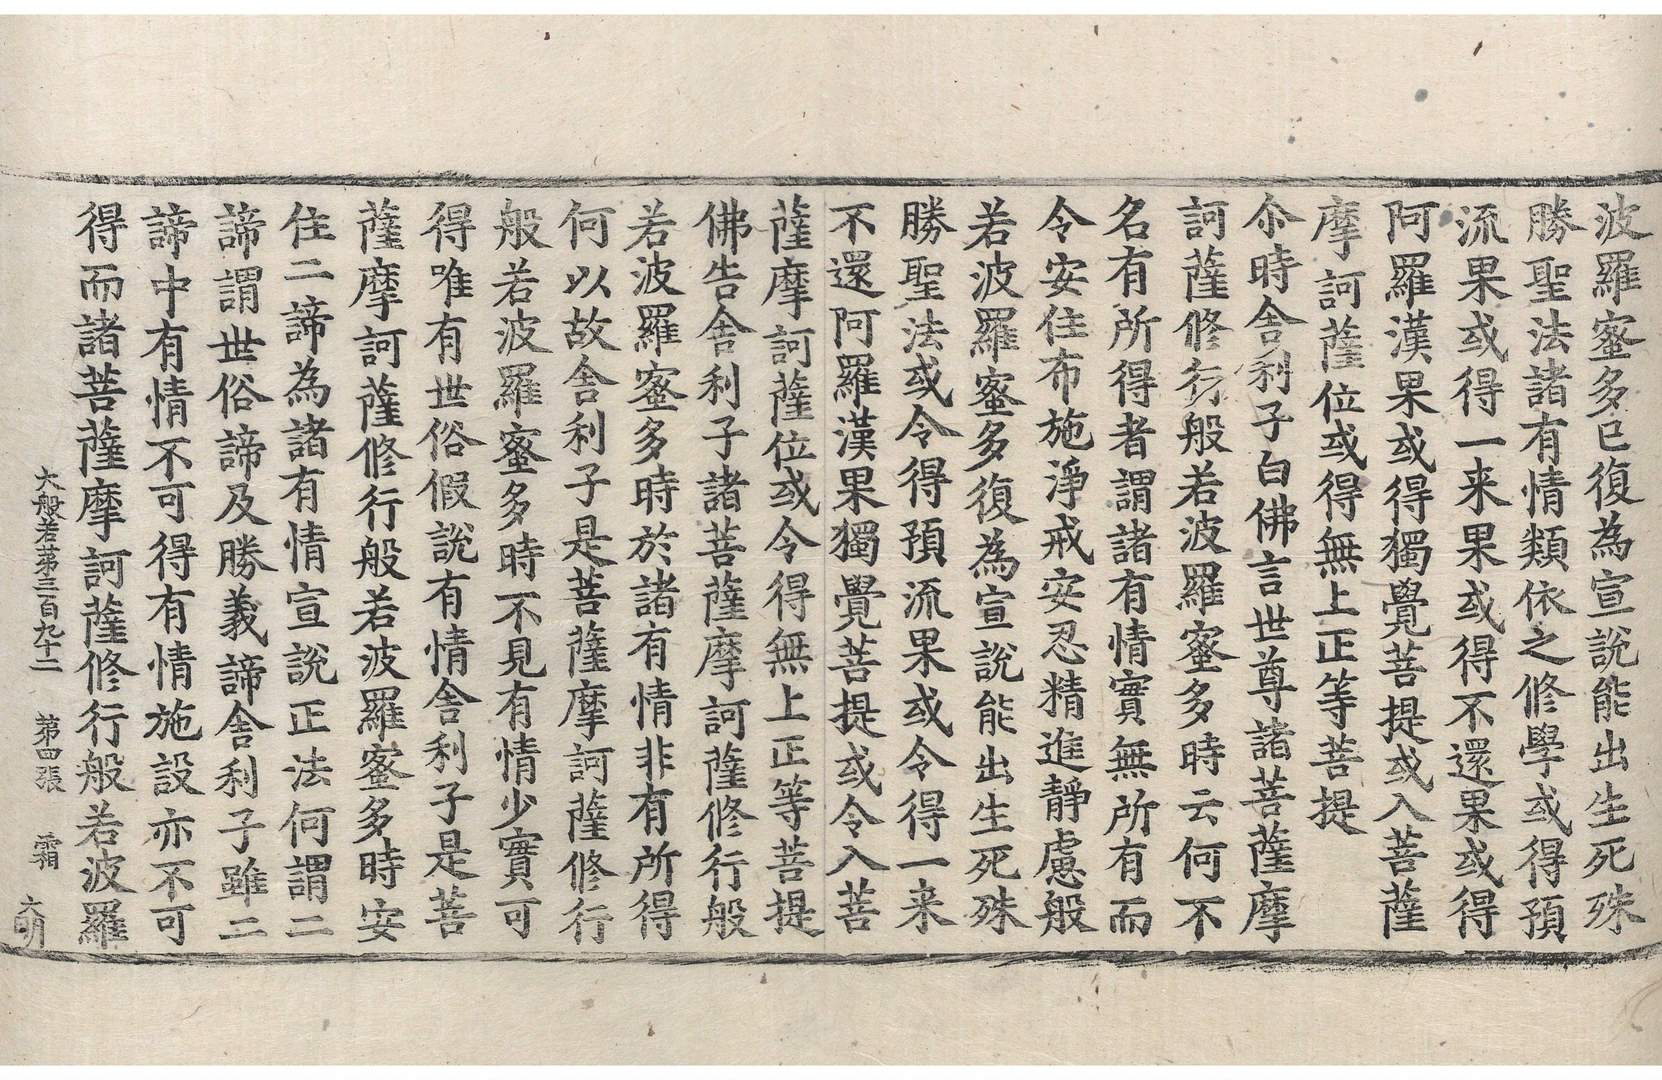 波羅蜜多已復為宣說能出生死殊
勝聖法諸有情類依之修學或得預
流果或得一来果或得不還果或得
阿羅漢果或得獨覺菩提或入菩薩
摩訶薩位或得無上正等菩提
尒時舍利子白佛言世尊諸菩薩摩
訶薩修行般若波羅蜜多時云何不
名有所得者謂諸有情實無所有而
令安住布施淨戒安忍精進靜慮般
若波羅蜜多復為宣說能出生死殊
勝聖法或令得預流果或令得一来
不還阿羅漢果獨覺菩提或令入菩
薩摩訶薩位或令得無上正等菩提
佛告舍利子諸菩薩摩訶薩修行般
若波羅蜜多時於諸有情非有所得
何以故舍利子是菩薩摩訶薩修行
般若波羅蜜多時不見有情少實可
得唯有世俗假說有情舍利子是菩
薩摩訶薩修行般若波羅蜜多時安
住二諦為諸有情宣說正法何謂二
諦謂世俗諦及勝義諦舍利子雖二
諦中有情不可得有情施設亦不可
得而諸菩薩摩訶薩修行般若波羅
大般若第三百九十二 第四張 霜 大明